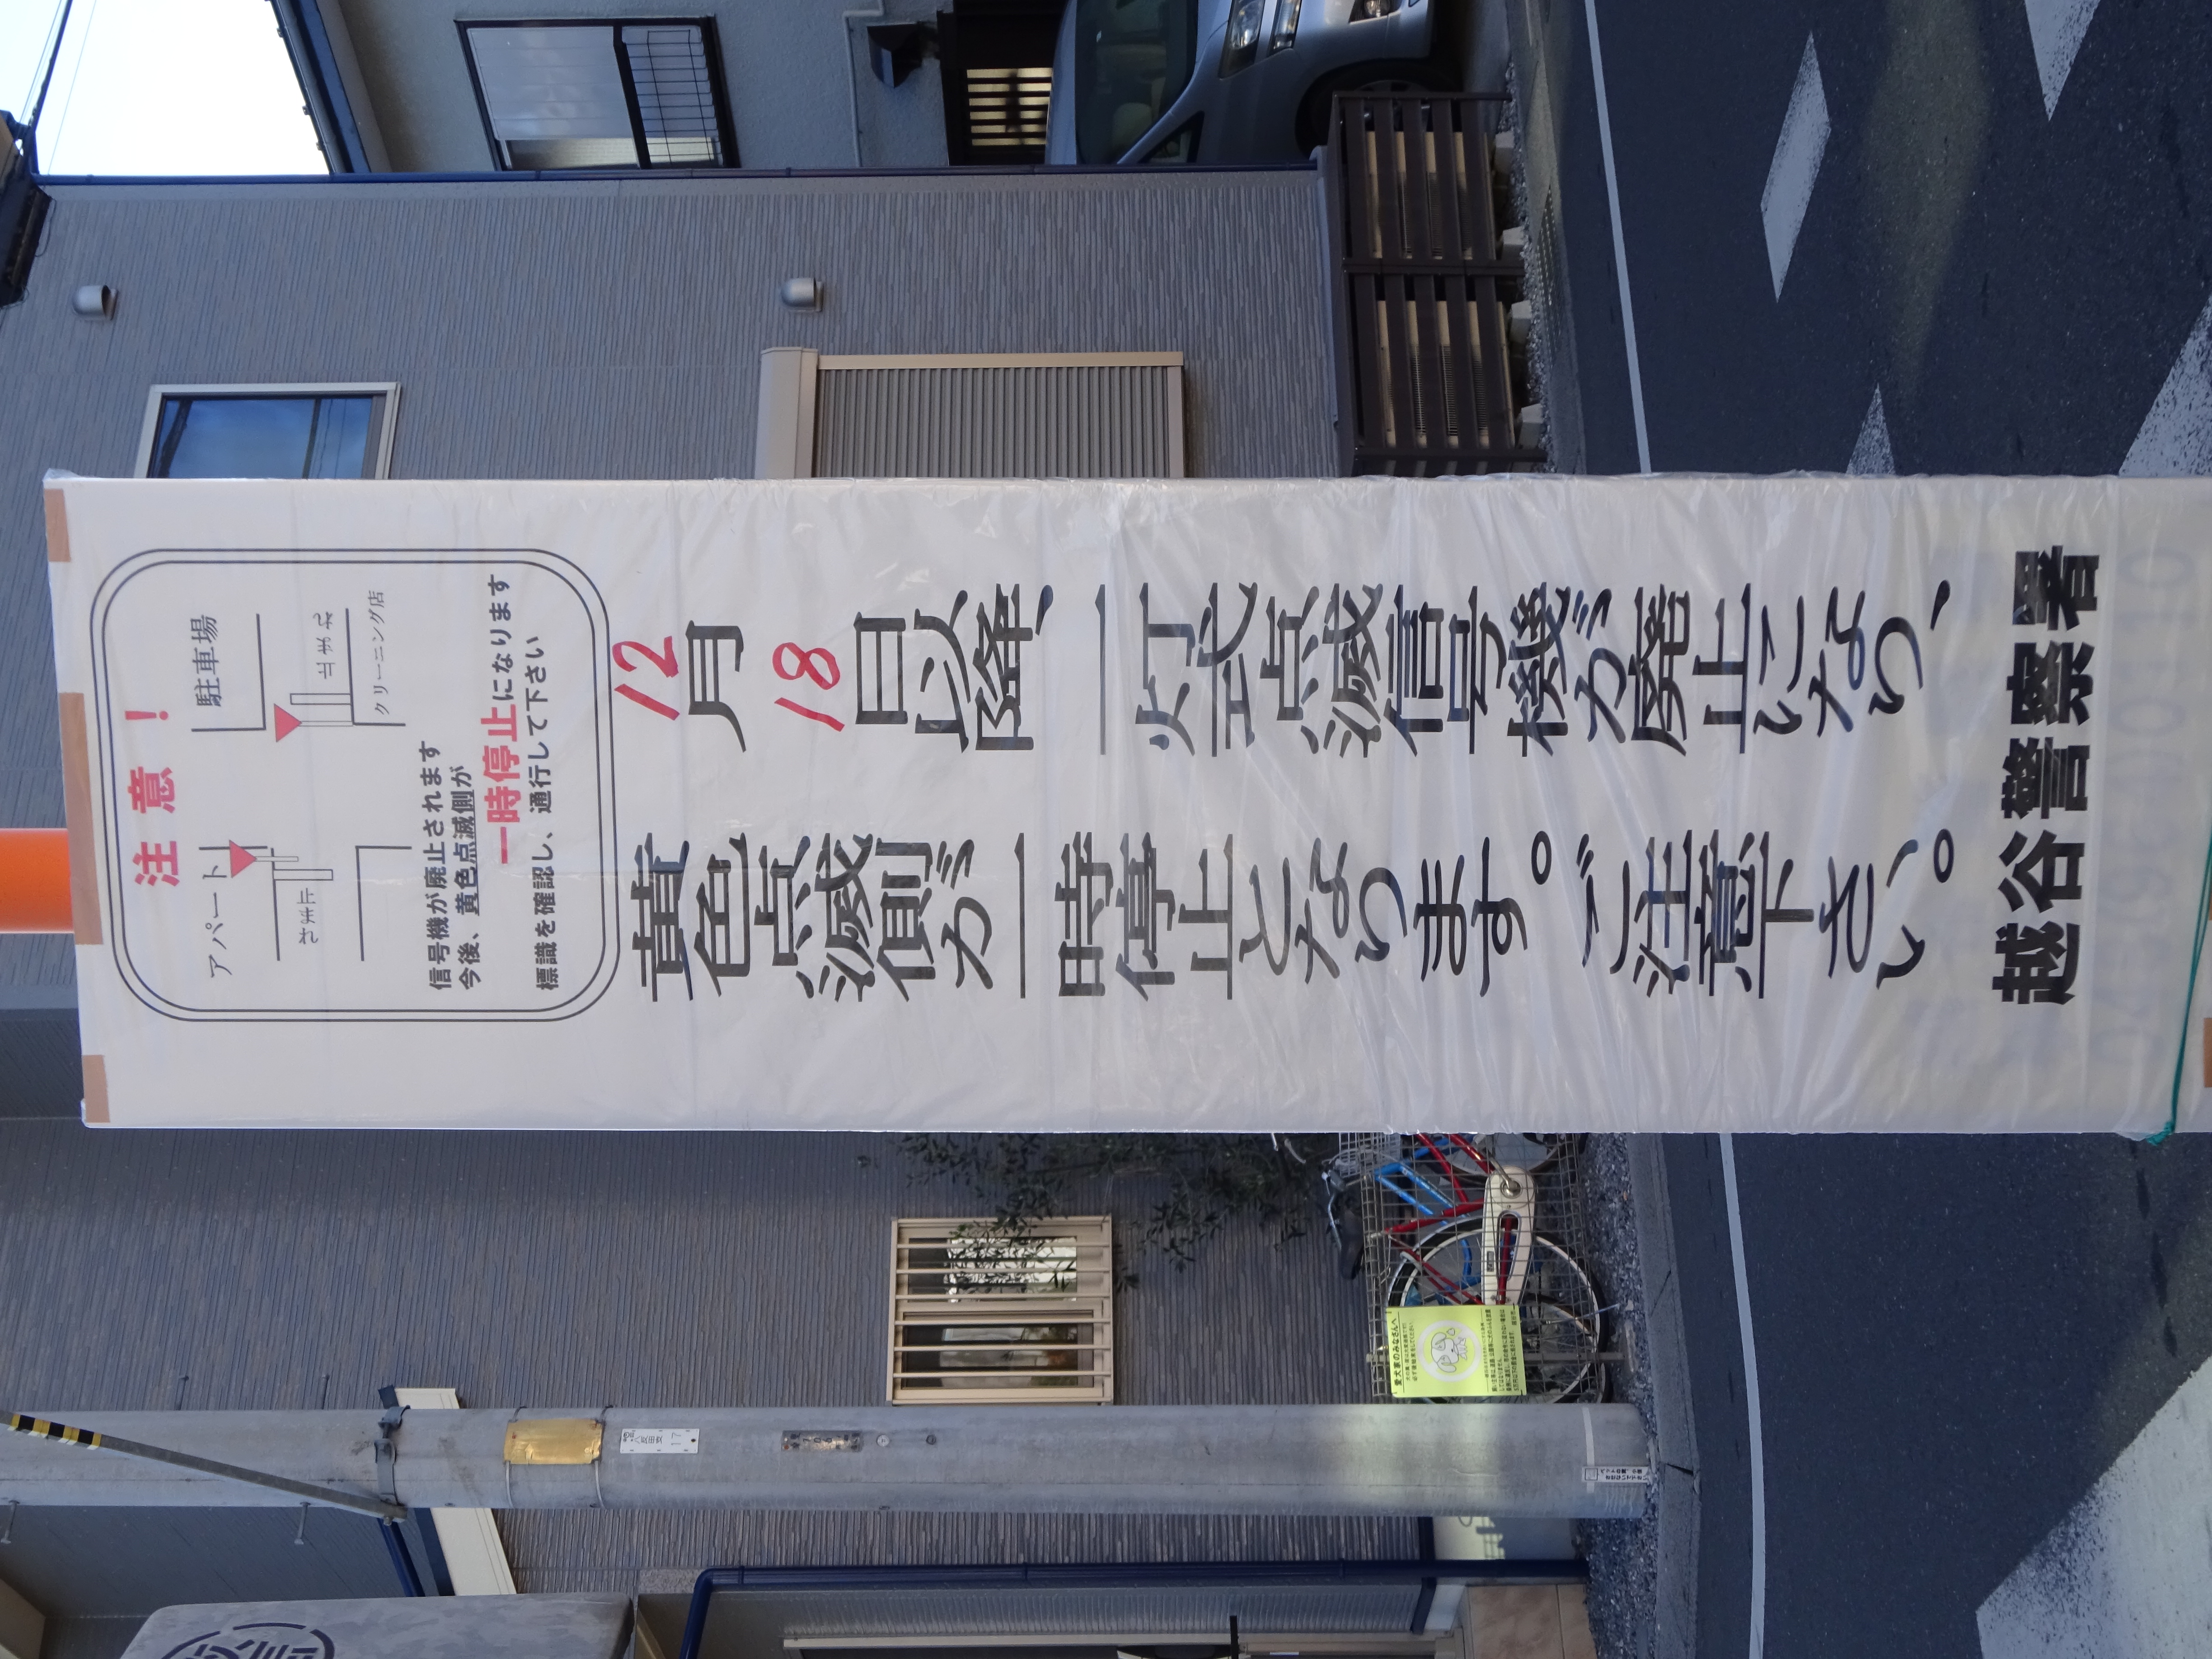 注意！
アパート
駐車場
止まれ
止まれ
クリーニング店
信号機が廃止されます
今後、黄色点滅側が
一時停止になります
標識を確認し、通行して下さい
12月18日以降、一灯式点滅信号機が廃止になり、
黄色点滅側が一時停止となります。ご注意下さい。
越谷警察署
愛犬家のみなさんへ
17